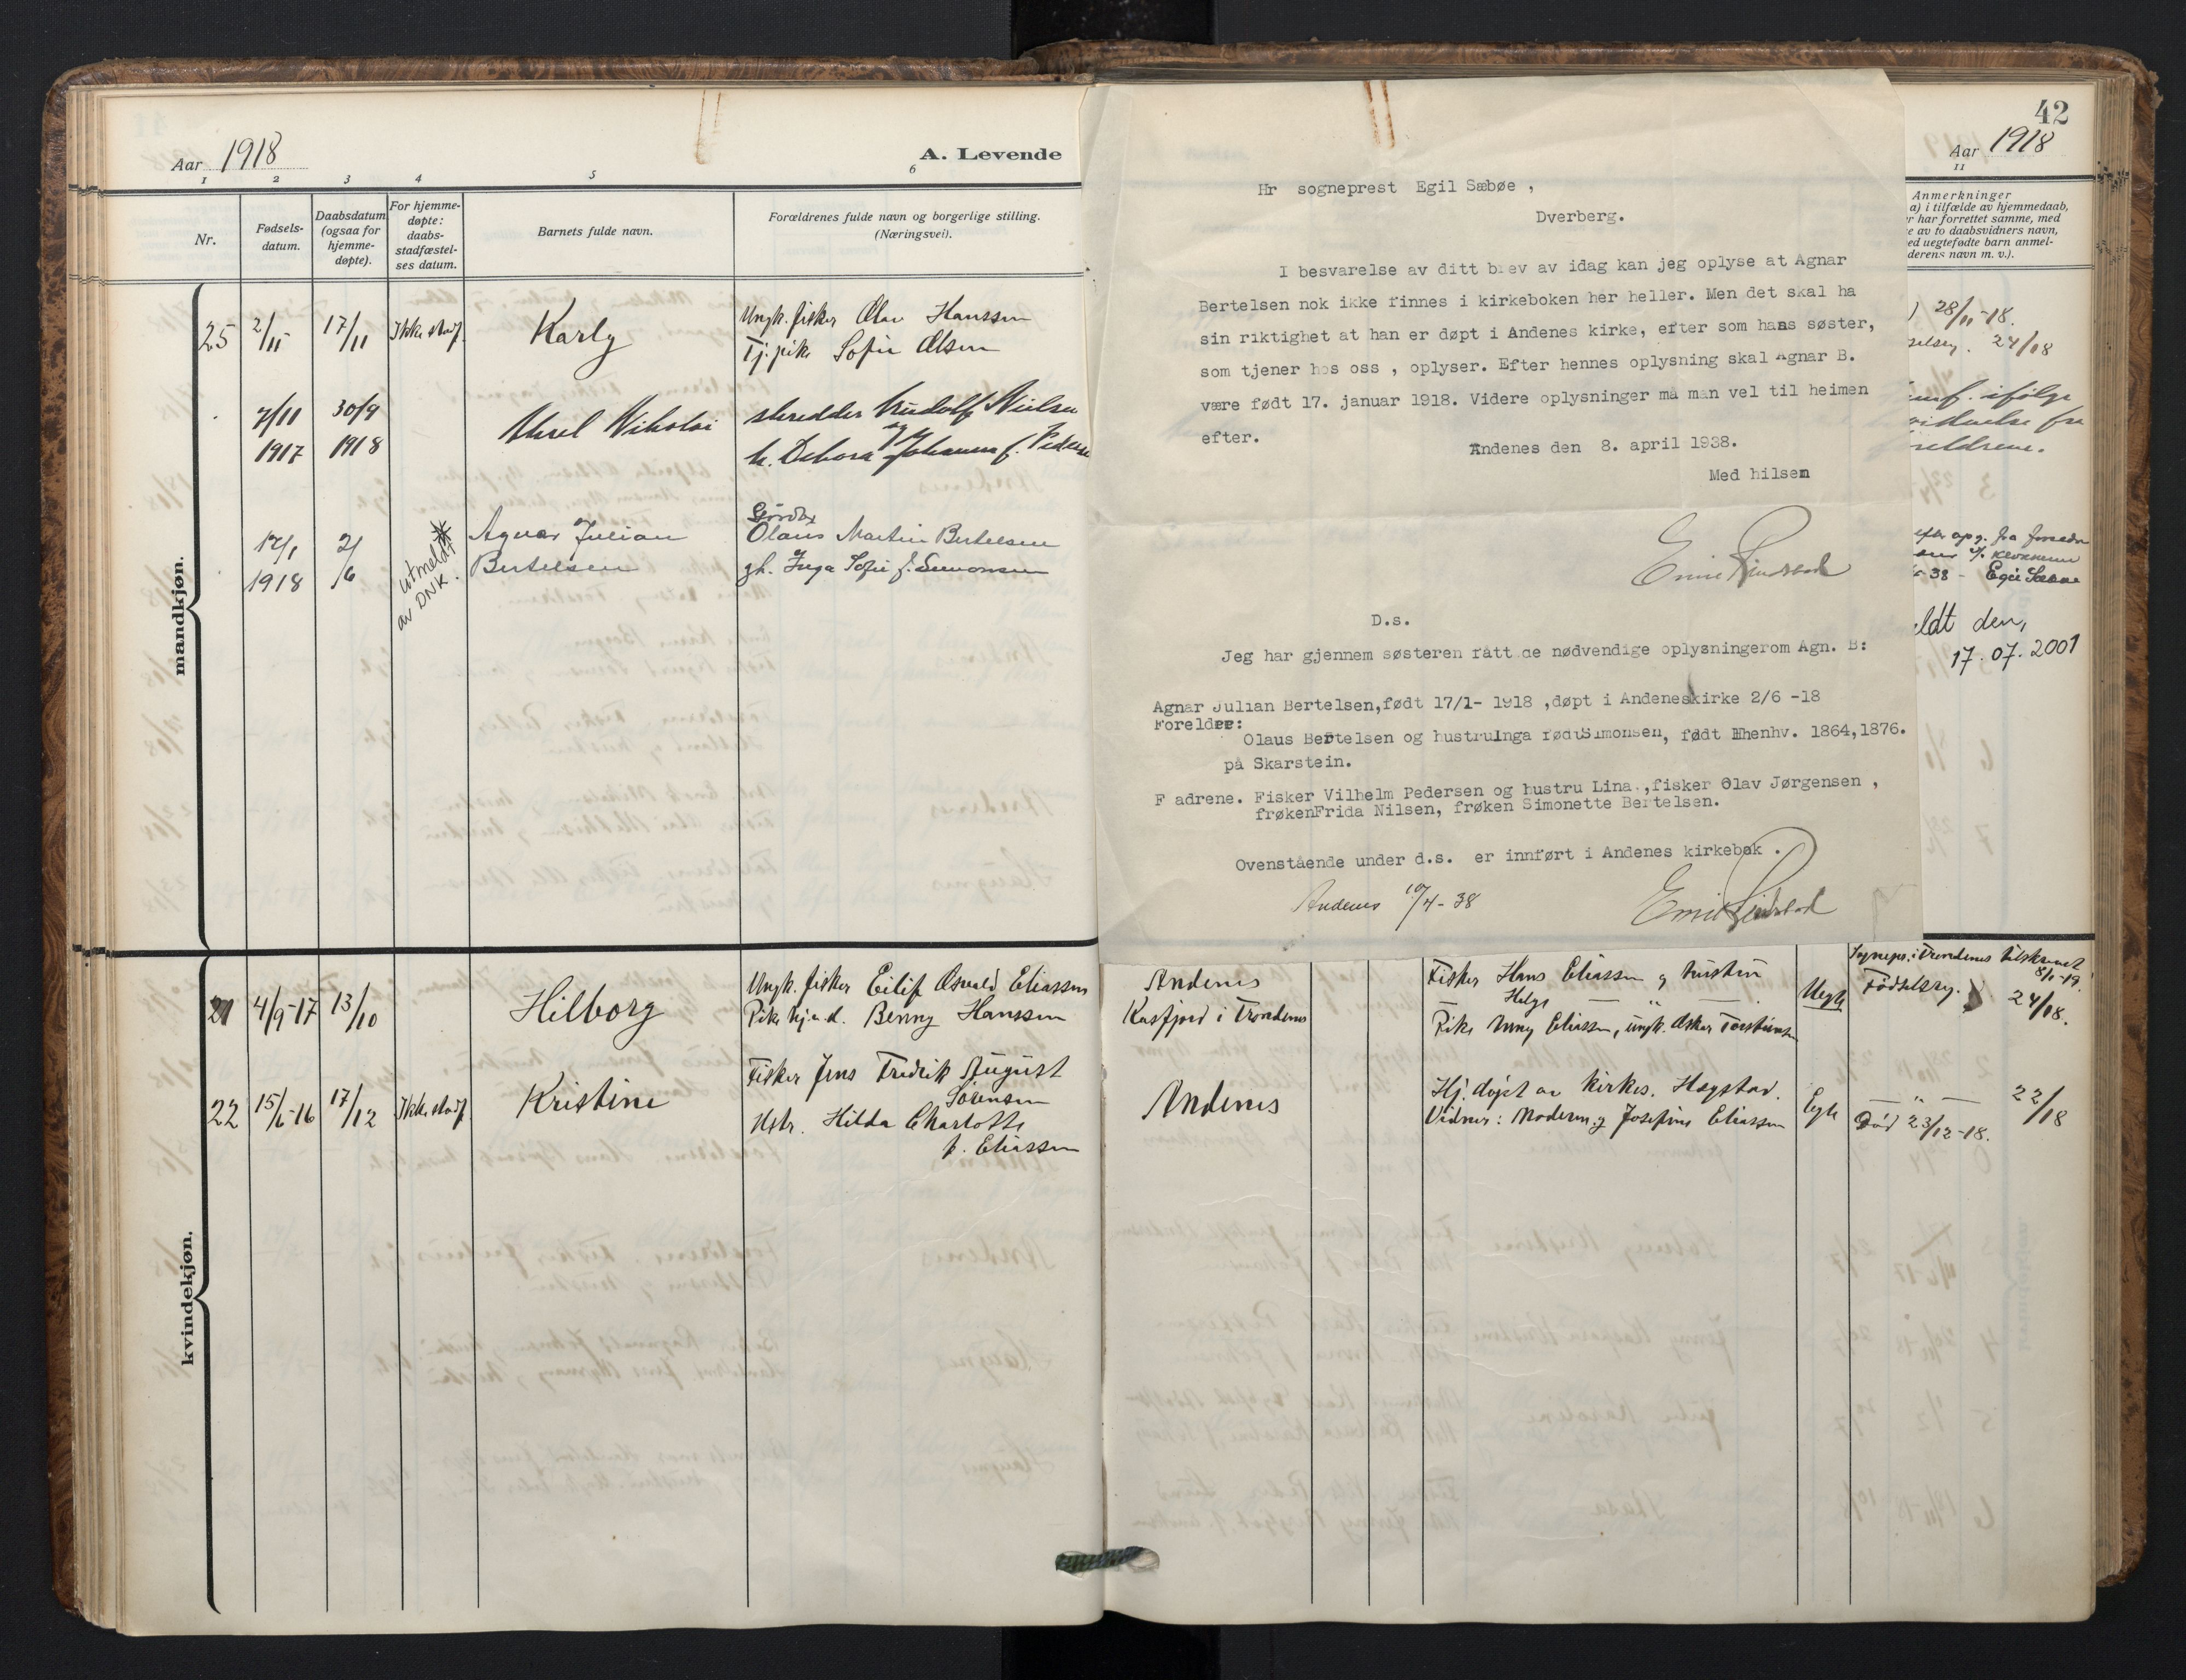 Aar 1918
A. Levende
1 2 3 4 5 6
Nr.
Fødsels-
datum.
Daabsdatum
(ogsaa for
hjemme-
døpte).
For hjemme-
døpte:
daabs-
stadfæstel-
ses datum.
Barnets fulde navn.
Forældrenes fulde navn og borgerlige stilling.
(Næringsvei).
mandkjøn.
25 2/11 17/11 Ikke stadf. Karly
Ungk. fisker Olav Hanssen
Tj. pike Sofie Olsen
7/11 30/9
1917 1918
Aksel Nikolai
skredder Rudolf Nielsen
og
h. Debora Johanna f. Pedersen
17/1 2/6
1918
utmeldt
av DNK.
Agnar Julian
Bertelsen
Gårdbr
Olaus Martin Bertelsen
gh. Inga Sofie f. Simonsen
kvindekjøn.
21 4/9-17 13/10 Hilborg
Ungk. fisker Eilif Osvald Eliassen
Pike Berny Hanssen
22 15/6-16 17/12 Ikke stadf. Kristine
Fisker Jens Fredrik August
Sørensen
Hstr. Hilda Charlotte
f. Eliassen
Hr sogneprest Egil Sæbøe ,
Dverberg.
I besvarelse av ditt brev av idag kan jeg oplyse at Agnar
Bertelsen nok ikke finnes i kirkeboken her heller. Men det skal ha
sin riktighet at han er døpt i Andenes kirke, efter som hans søster,
som tjener hos oss , oplyser. Efter hennes oplysning skal Agnar B.
være født 17. januar 1918. Videre oplysninger må man vel til heimen
efter.
Andenes den 8. april 1938.
Med hilsen
D.s.
Jeg har gjennem søsteren fått de nødvendige oplysningerom Agn. B:
Agnar Julian Bertelsen,født 17/1- 1918 ,døpt i Andeneskirke 2/6 -18
Foreldre:
Olaus Bertelsen og hustruInga fødtSimonsen, født Hhenhv. 1864,1876.
på Skarstein.
F adrene. Fisker Vilhelm Pedersen og hustru Lina.,fisker Olav Jørgensen ,
frøkenFrida Nilsen, frøken Simonette Bertelsen.
Ovenstående under d.s. er innført i Andenes kirkebok .
Andenes 10/4-38
42
Aar 1918
11
Anmerkninger
a) i tilfælde av hjemmedaab,
r har forrettet samme, med
e av to daabsvidners navn,
ed uegtefødte barn anmel-
derens navn m. v.).
28/11-18.
24/18
ifølge
fra
foreldrene.
efter opg. fra
-38 - Egil Sæbøe
ldt den,
17.07.2001
Andenes
Kasfjord i Trondenes
Fisker Hans Eliassen og hustru
Helga — " —
Pike Anny Eliassen, ungk. Oskar
Uegte
Sognepr. i Trondenes tilskrevet
8/1-19.
Fødselsreg. 24/18.
Andenes
Hj. døpt av kirkes. Hagstad.
Vidner: Moderen og Josefine Eliassen
Egte
— " — 22/18
Død 23/12-18.